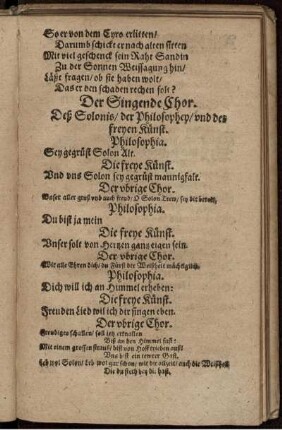 So er von dem Cyro erlitten/
Darumb schickt er nach alten sitten
Mit viel geschenck sein Raht Sandin
Zu der Sonnen Weissagung hin/
Läst fragen/ ob sie haben wolt/
Das er den schaden rechen solt?
Der Singende Chor.
Deß Solonis/ der Philosophey/ vnd des
freyen Künst.
Philosophia.
Sey gegrüst Solon Alt.
Die freye Künst.
Vnd vns Solon sey gegrüst mannigfalt.
Der vbrige Chor.
Vnser aller gruß und auch freud/ O Solon sey dir bereit/
Philosophia.
Du bist ja mein
Die freye Künst.
Vnser solt von Hertzen gantz eigen sein.
Der vbrige Chor.
Wir alle Ehren dich/ du Fürst der Weißheit mächtiglich.
Philosophia.
Dich will ich an Himmel erheben:
Die freye Künst.
Freuden Lied wol ich der singen eben.
Der vbrige Chor.
schallen/ soll erknallen
Biß an den Himmel fast:
Mit einem grossen
Vns bist ein Gast,
Solon/ Leb wol auch die Weißheit
Die du bey dir hast.